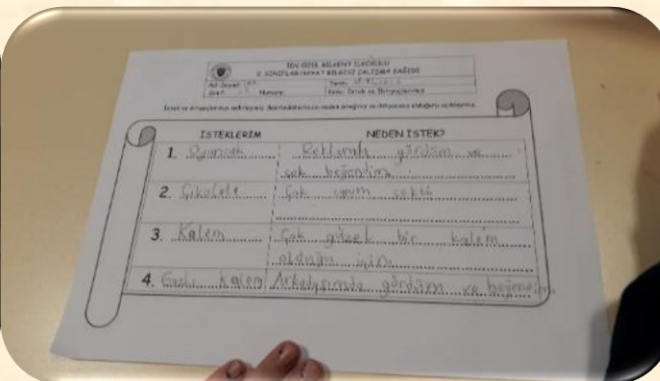 İDV ÖZEL BİLKENT İLKOKULU
2. SINIFLAR HAYAT BİLGİSİ ÇALIŞMA KAĞIDI
Ad-Soyad:
Sınıf: Numara:
Tarih:
Konu: İstek ve İhtiyaçlarımız
İSTEKLERİM
NEDEN İSTEK?
1. Oyuncak
Reklamda gördüm ve
çok beğendim.
2. Çikolata
Çok canım çekti
3. Kalem
Çok güzel bir kalem
olduğu için
4. kalem
Arkadaşımda gördüm ve beğendim